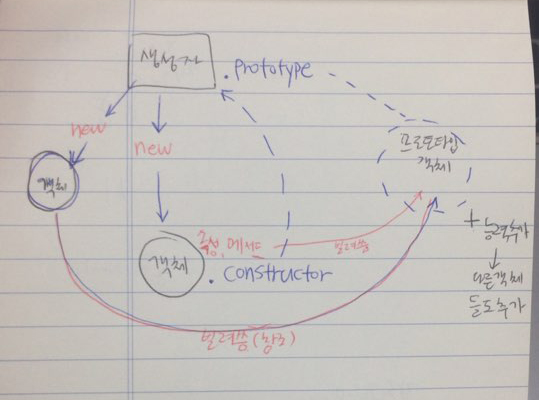 생성자
.prototype
new
new
프로토타입
객체
객체
속성, 메서드
빌려씀
객체
.constructor
+ 능력추가
↓
다른객체
들도추가
빌려씀(참조)